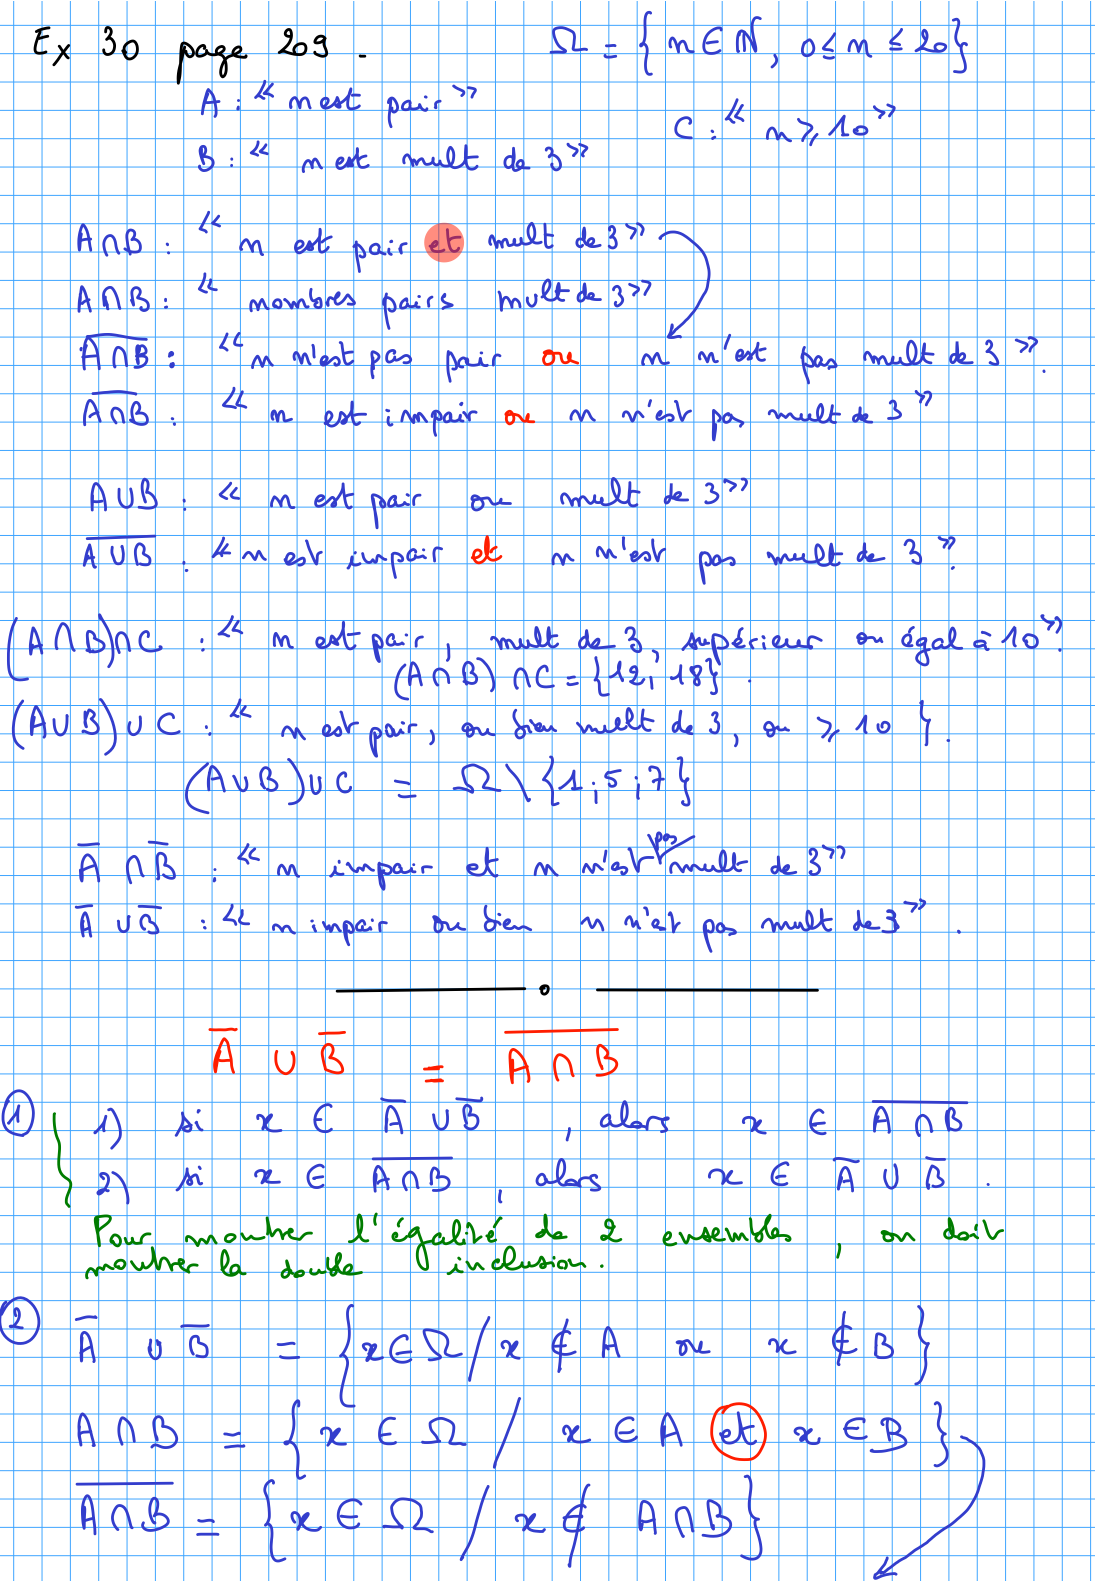 Ex 30 page 209. Ω = {n ∈ ℕ, 0 ≤ n ≤ 20}
A : « n est pair »
C : « n ⩾ 10 »
B : « n est mult de 3 »
A∩B : « n est pair et mult de 3 »
A∩B : « nombres pairs mult de 3 »
\overline{A∩B} : « n n'est pas pair ou n n'est pas mult de 3 ».
\overline{A∩B} : « n est impair ou n n'est pas mult de 3 »
A∪B : « n est pair ou mult de 3 »
\overline{A∪B} : « n est impair et n n'est pas mult de 3 ».
(A∩B)∩C : « n est pair, mult de 3, supérieur ou égal à 10 ».
(A∩B)∩C = {12; 18}.
(A∪B)∪C : « n est pair, ou bien mult de 3, ou ⩾ 10 }.
(A∪B)∪C = Ω \ {1; 5; 7}
\overline{A} ∩ \overline{B} : « n impair et n n'est pas mult de 3 »
\overline{A} ∪ \overline{B} : « n impair ou bien n n'est pas mult de 3 ».
\overline{A} ∪ \overline{B} = \overline{A∩B}
① 1) si x ∈ \overline{A} ∪ \overline{B}, alors x ∈ \overline{A∩B}
2) si x ∈ \overline{A∩B}, alors x ∈ \overline{A} ∪ \overline{B}.
Pour montrer l'égalité de 2 ensembles, on doit
montrer la double inclusion.
② \overline{A} ∪ \overline{B} = {x ∈ Ω / x ∉ A ou x ∉ B}
A∩B = {x ∈ Ω / x ∈ A et x ∈ B}
\overline{A∩B} = {x ∈ Ω / x ∉ A∩B}